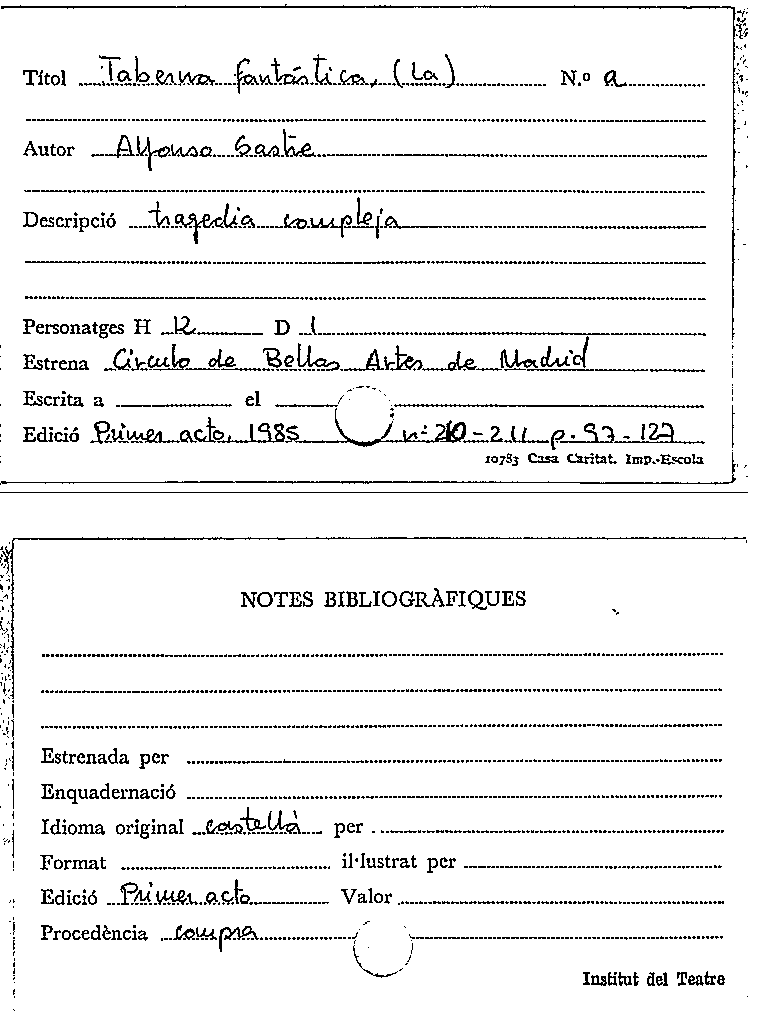 Títol Taberna fantástica, (La) N.º a
Autor Alfonso Sastre
Descripció tragedia compleja
Personatges H 12 D 1
Estrena Círculo de Bellas Artes de Madrid
Escrita a el
Edició Primer acto, 1985 nº 210-211 p. 97-127
10783 Casa Caritat. Imp.-Escola
NOTES BIBLIOGRÀFIQUES
Estrenada per
Enquadernació
Idioma original castellà per
Format il·lustrat per
Edició Primer acto Valor
Procedència compra
Institut del Teatre